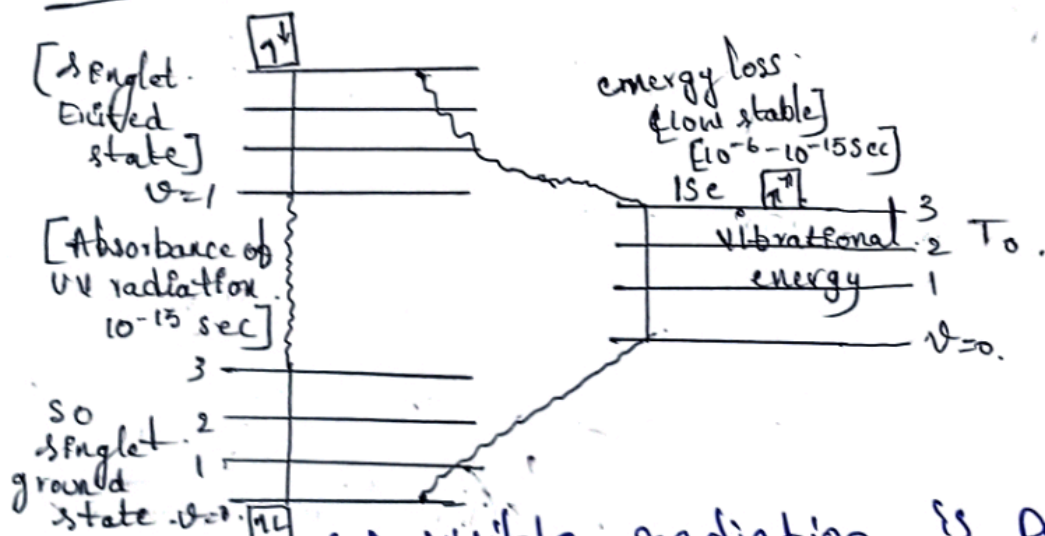 [singlet
Exited
state]
v=1
[Absorbance of
UV radiation
10⁻¹⁵ sec]
3
SO
2
singlet
1
ground
state v=0
energy loss
[low stable]
[10⁻⁶-10⁻¹⁵ Sec]
ISC
3
vibrational 2 T₀.
energy 1
v=0.
visible radiation is